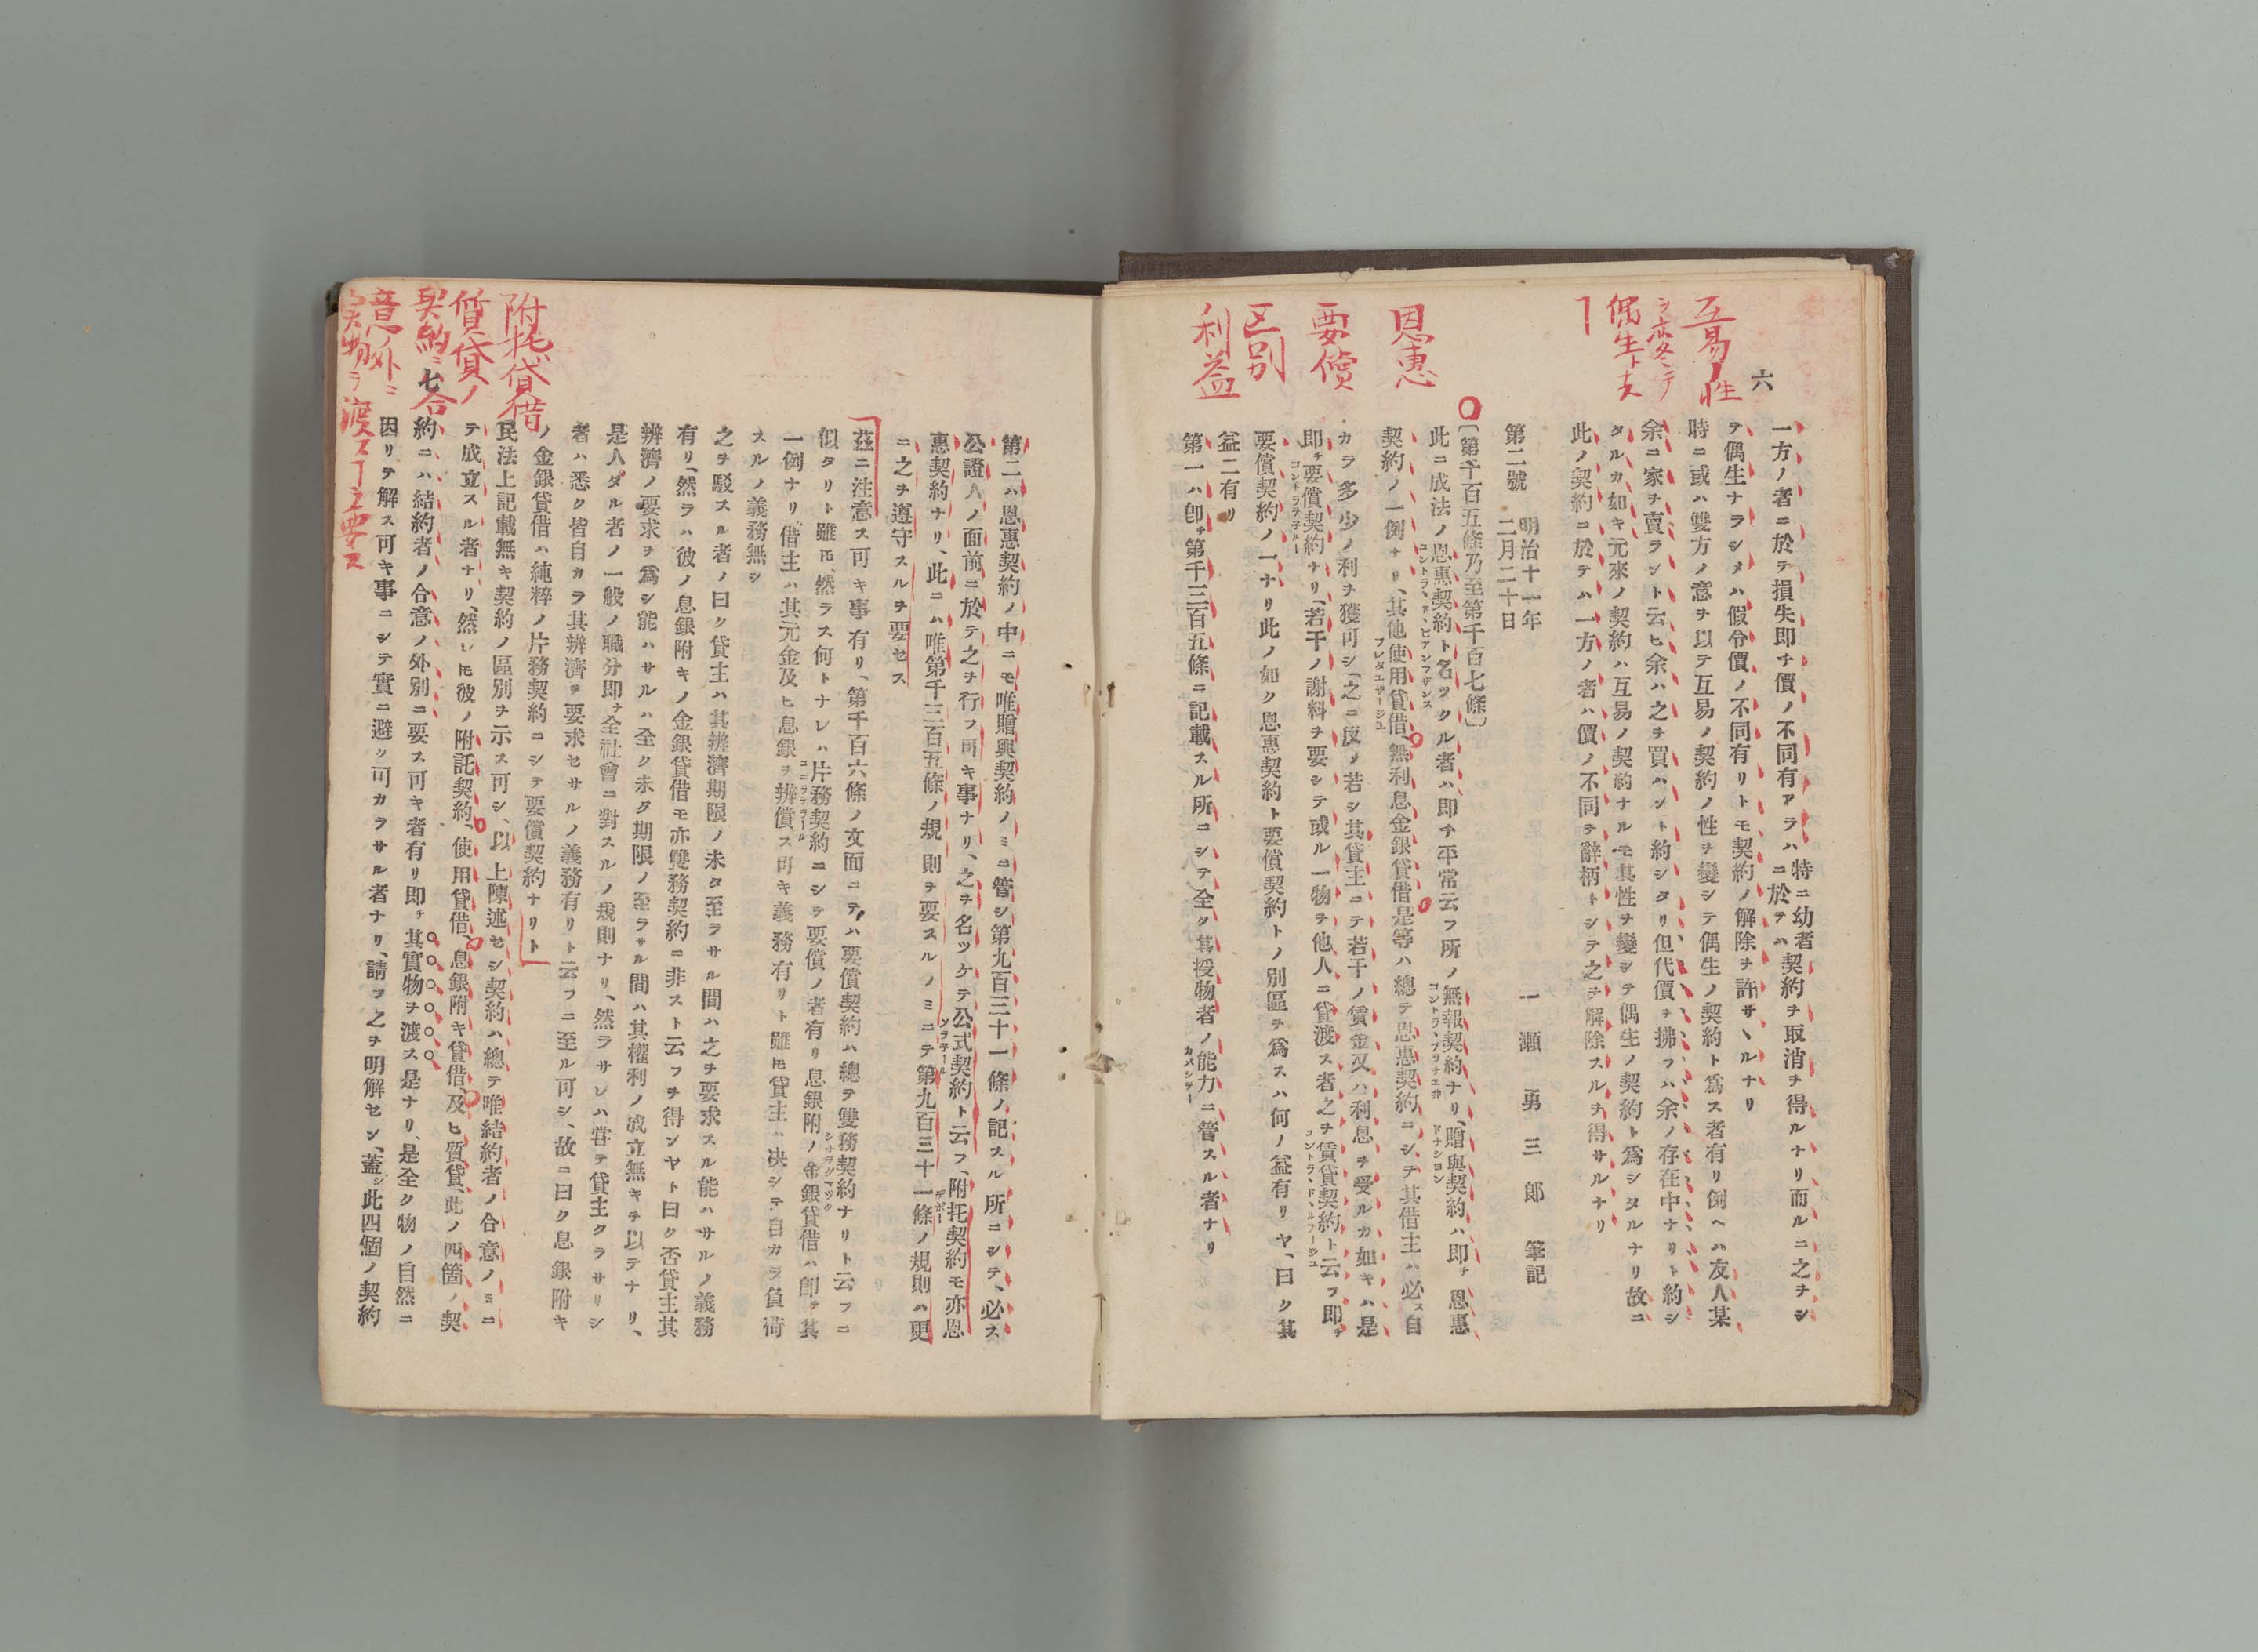 六
互易ノ性
ヲ変冬シテ
偶生ト支
恩惠
要償
区別
利益
一方ノ者ニ於テ損失即チ價ノ不同有アラハ特ニ幼者ニ於テハ契約ヲ取消チ得ルナリ而ルニ之ヲシ
テ偶生ナラシメハ假令價ノ不同有リトモ契約ノ解除ヲ許サヽルナリ
時ニ或ハ雙方ノ意ヲ以テ互易ノ契約ノ性ヲ變シテ偶生ノ契約ト爲ス者有リ例ヘハ友人某
余ニ家ヲ賣ラント云ヒ余ハ之ヲ買ハント約シタリ但代價ヲ拂フハ余ノ存在中ナリト約シ
タルカ如キ元來ノ契約ハ互易ノ契約ナルモ其性ヲ變シテ偶生ノ契約ト爲シタルナリ故ニ
此ノ契約ニ於テハ一方ノ者ハ價ノ不同ヲ辭柄トシテ之ヲ解除スルヲ得サルナリ
第二號 明治十一年二月二十日 一瀬勇三郎 筆記
〔第千百五條乃至第千百七條〕
此ニ成法ノ恩惠契約ト名ツクル者ハ即チ平常云フ所ノ無報契約ナリ、贈與契約ハ即チ恩惠
契約ノ一例ナリ、其他使用貸借、無利息金銀貸借是等ハ總テ恩惠契約ニシテ其借主ハ必ス自
カラ多少ノ利ヲ獲可シ、之ニ反シ若シ其貸主ニテ若干ノ賃金又ハ利息ヲ受ルカ如キハ是
即チ要償契約ナリ、若干ノ謝料ヲ要シテ或ル一物ヲ他人ニ貸渡ス者之ヲ賃貸契約ト云フ即チ
要償契約ノ一ナリ此ノ如ク恩惠契約ト要償契約トノ別區ヲ爲スハ何ノ益有リヤ、曰ク其
益二有リ
第一ハ即チ第千三百五條ニ記載スル所ニシテ全ク其授物者ノ能力ニ管スル者ナリ
附托貸借
質貸ノ
契約ニ
七
合
意ノ外ニ
実物ヲ渡スヿヲ要ス
第二ハ恩惠契約ノ中ニモ唯贈與契約ノミニ管シ第九百三十一條ノ記スル所ニシテ、必ス
公證人ノ面前ニ於テ之ヲ行フ可キ事ナリ、之ヲ名ツケテ公式契約ト云フ、附托契約モ亦恩
惠契約ナリ、此ニハ唯第千三百五條ノ規則ヲ要スルノミニテ第九百三十一條ノ規則ハ更
ニ之ヲ遵守スルヲ要セス
茲ニ注意ス可キ事有リ、第千百六條ノ文面ニテハ要償契約ハ總テ雙務契約ナリト云フニ
似タリト雖モ、然ラス何トナレハ片務契約ニシテ要償ノ者有リ息銀附ノ金銀貸借ハ即チ其
一例ナリ、借主ハ其元金及ヒ息銀ヲ辨償ス可キ義務有リト雖モ貸主ハ決シテ自カラ負荷
スルノ義務無シ
之ヲ駁スル者ノ曰ク貸主ハ其辨濟期限ノ未タ至ラサル間ハ之ヲ要求スル能ハサルノ義務
有リ、然ラハ彼ノ息銀附キノ金銀貸借モ亦雙務契約ニ非スト云フヲ得ンヤト曰ク否貸主其
辨濟ノ要求ヲ爲シ能ハサルハ全ク未タ期限ノ至ラサル間ハ其權利ノ成立無キヲ以テナリ、
是人タル者ノ一般ノ職分即チ全社會ニ對スルノ規則ナリ、然ラサレハ甞テ貸主タラサリシ
者ハ悉ク皆自カラ其辨濟ヲ要求セサルノ義務有リト云フニ至ル可シ、故ニ曰ク息銀附キ
ノ金銀貸借ハ純粹ノ片務契約ニシテ要償契約ナリト
民法上記載無キ契約ノ區別ヲ示ス可シ、以上陳述セシ契約ハ總テ唯結約者ノ合意ノミニ
テ成立スル者ナリ、然レモ彼ノ附託契約、使用貸借、息銀附キ貸借、及ヒ質貸、此ノ四箇ノ契
約ニハ結約者ノ合意ノ外別ニ要ス可キ者有リ即チ其實物ヲ渡ス是ナリ、是全ク物ノ自然ニ
因リテ解ス可キ事ニシテ實ニ避ク可カラサル者ナリ、請フ之ヲ明解セン、蓋シ此四個ノ契約